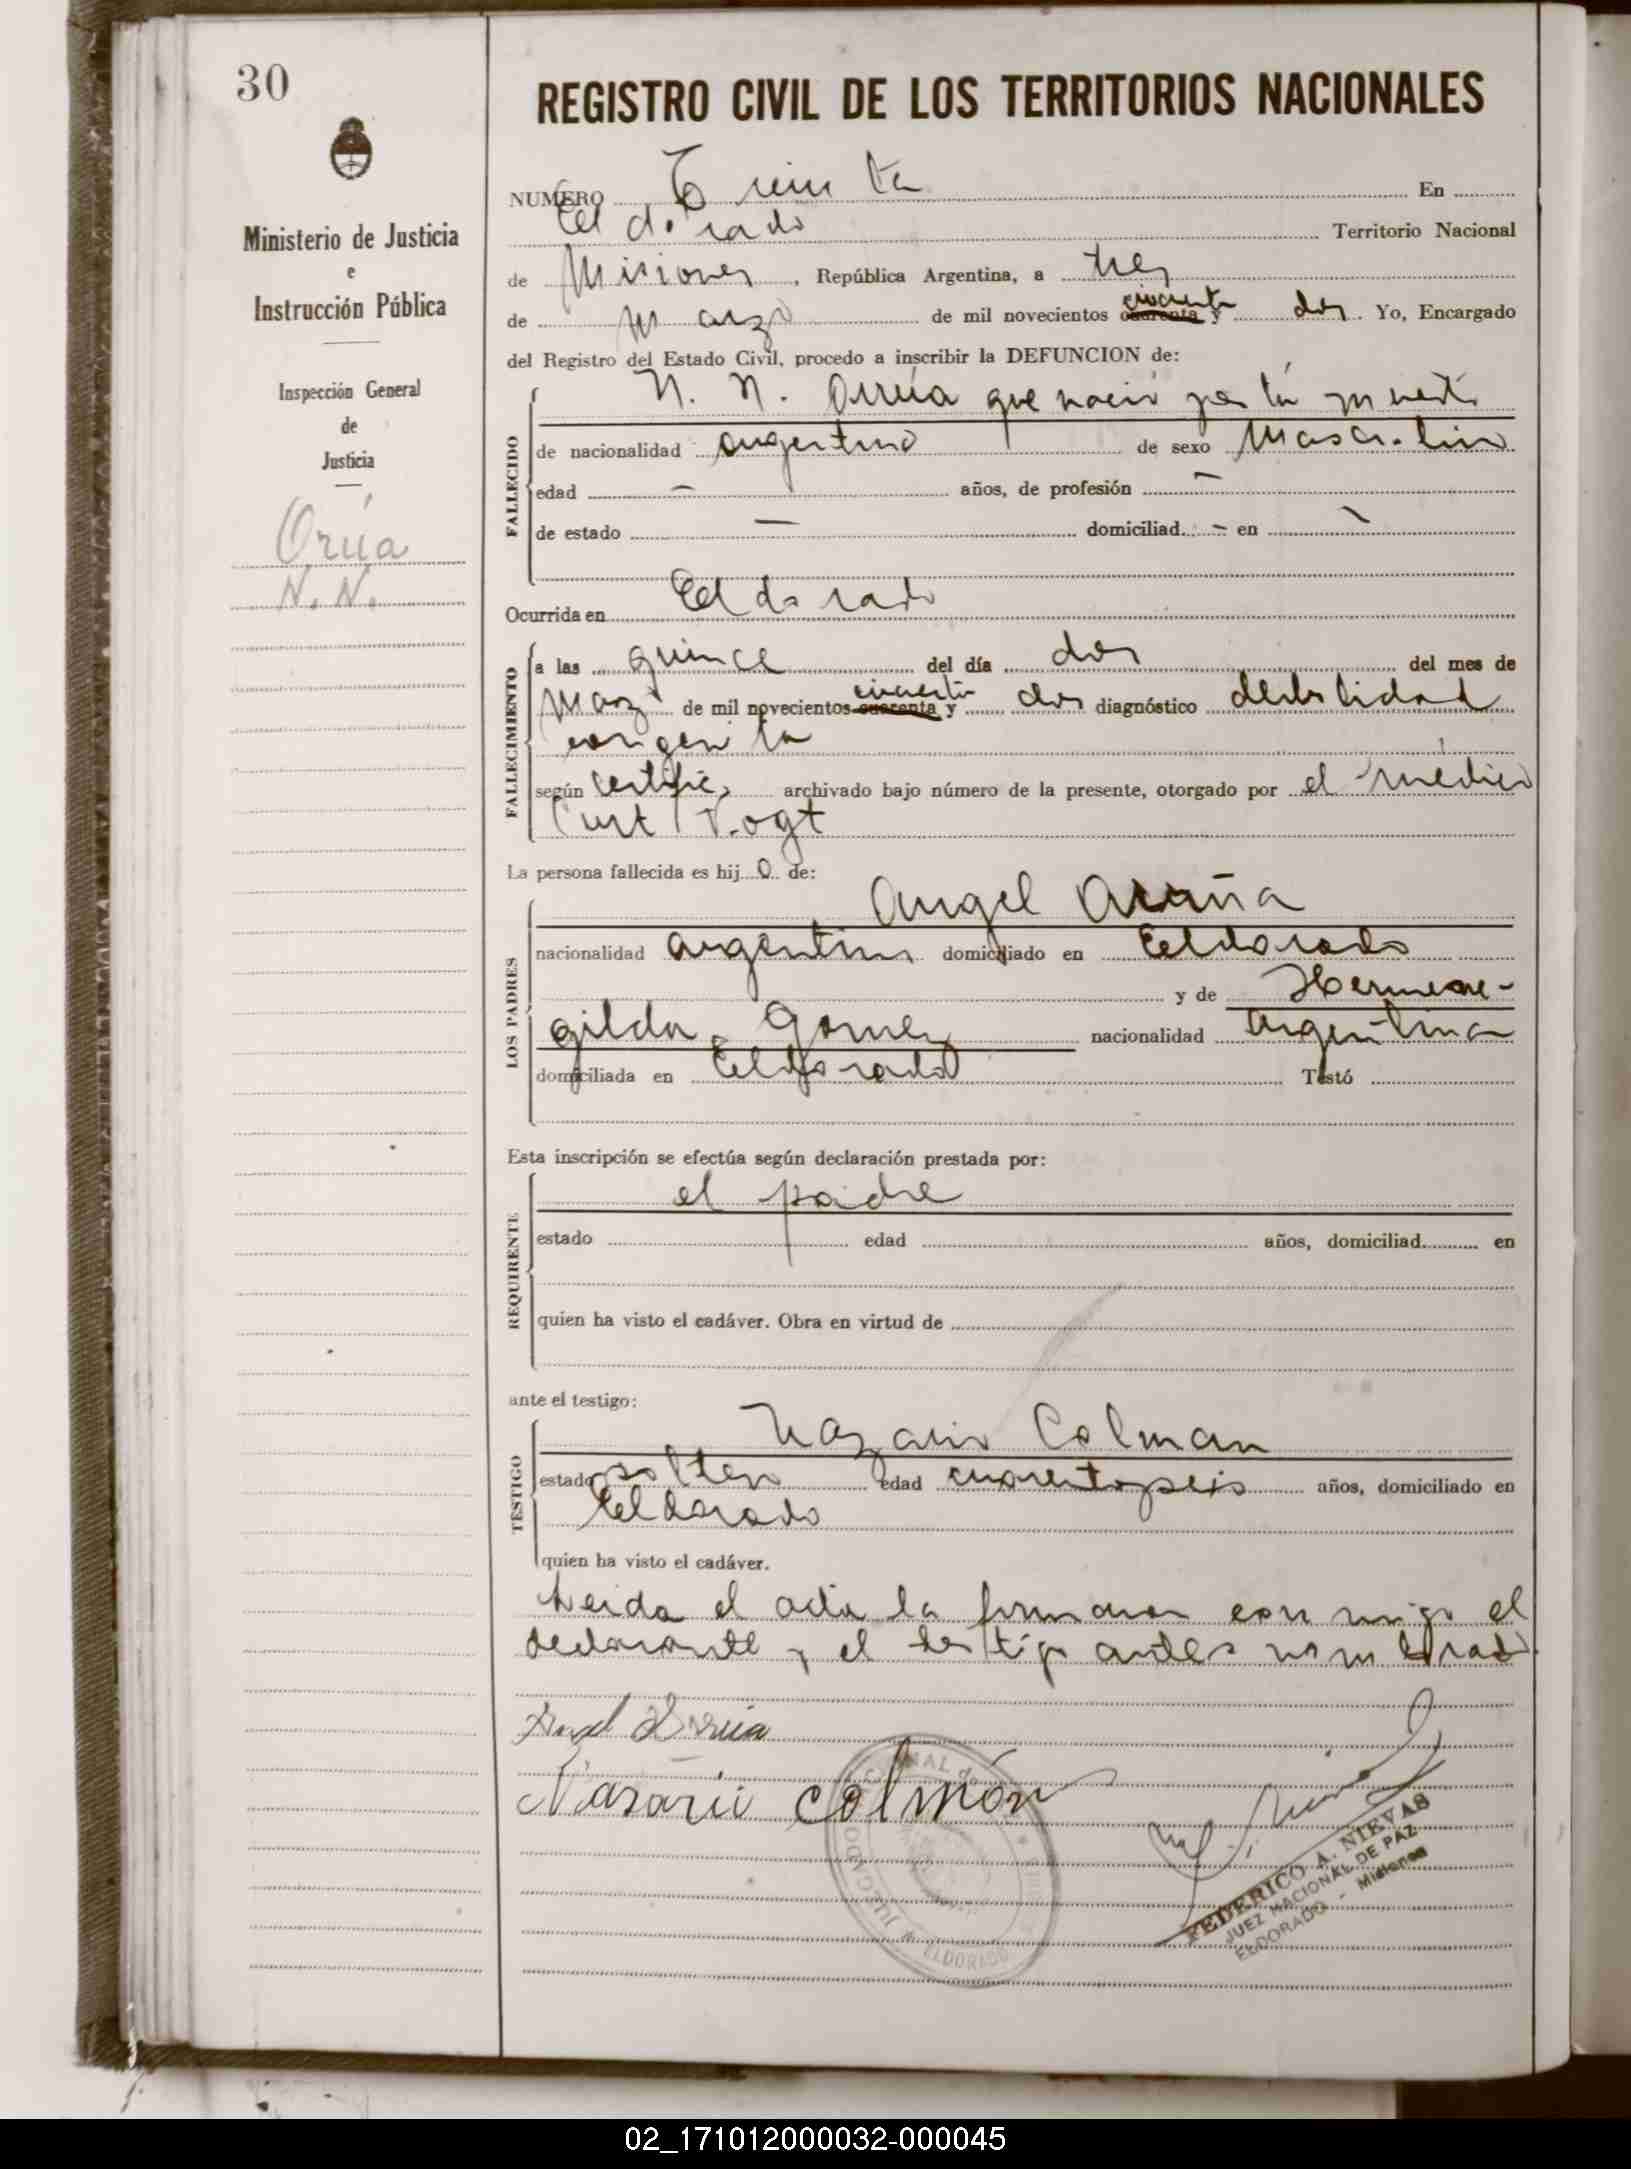 30
Ministerio de Justicia
e
Instrucción Pública
Inspección General
de
Justicia
Orúa
N. N.
REGISTRO CIVIL DE LOS TERRITORIOS NACIONALES
NUMERO Treinta En
Eldorado Territorio Nacional
de Misiones, República Argentina, a tres
cincuenta
de Marzo de mil novecientos cuarenta y dos. Yo, Encargado
del Registro del Estado Civil, procedo a inscribir la DEFUNCION de:
FALLECIDO
N. N. Orrúa que nació
de nacionalidad argentino de sexo Masculino
edad — años, de profesión —
de estado — domiciliad — en —
Ocurrida en Eldorado
FALLECIMIENTO
a las quince del día dos del mes de
cincuenta
Marzo de mil novecientos cuarenta y dos diagnóstico debilidad
congenita
según certific, archivado bajo número de la presente, otorgado por el médico
Curt Vogt
La persona fallecida es hijo de:
LOS PADRES
Angel
nacionalidad argentino domiciliado en Eldorado
y de Hermene-
gilda Gomez nacionalidad argentina
domiciliada en Eldorado Testó
Esta inscripción se efectúa según declaración prestada por:
REQUIRENTE
el padre
estado edad años, domiciliad en
quien ha visto el cadáver. Obra en virtud de
ante el testigo:
TESTIGO
Nazario Colman
estado soltero edad cuarentayseis años, domiciliado en
Eldorado
quien ha visto el cadáver.
Leida el acta la firmaron conmigo el
declarante y el testigo antes nombrado
Angel Orrúa
Nasario Colmán
JUZGADO NACIONAL de PAZ
ELDORADO
FEDERICO A. NIEVAS
JUEZ NACIONAL DE PAZ
ELDORADO - Misiones
02_171012000032-000045